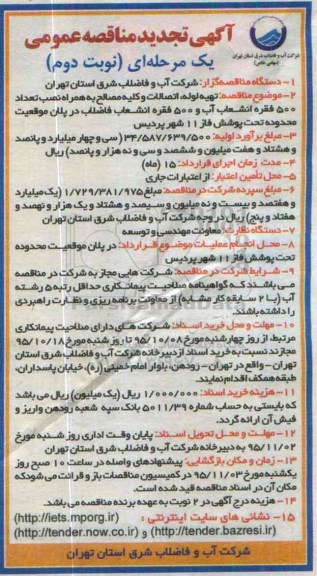 آگهی تجدید مناقصه عمومی
یک مرحله‌ای (نوبت دوم)
شرکت آب و فاضلاب شرق استان تهران
(سهامی خاص)
۱- دستگاه مناقصه‌گزار: شرکت آب و فاضلاب شرق استان تهران
۲- موضوع مناقصه: تهیه لوله، اتصالات و کلیه مصالح به همراه نصب تعداد
۵۰۰ فقره انشعاب آب و ۵۰۰ فقره انشعاب فاضلاب در پلان موقعیت
محدوده تحت پوشش فاز ۱۱ شهر پردیس
۳- مبلغ برآورد اولیه: ۳۴/۵۸۷/۶۳۹/۵۰۰ (سی و چهار میلیارد و پانصد
و هشتاد و هفت میلیون و ششصد و سی و نه هزار و پانصد) ریال
۴- مدت زمان اجرای قرارداد: ۱۵ (ماه)
۵- محل تأمین اعتبار: از اعتبارات جاری
۶- مبلغ سپرده شرکت در مناقصه: مبلغ ۱/۷۲۹/۳۸۱/۹۷۵ (یک میلیارد
و هفتصد و بیست و نه میلیون و سیصد و هشتاد و یک هزار و نهصد و
هفتاد و پنج) ریال در وجه شرکت آب و فاضلاب شرق استان تهران
۷- دستگاه نظارت: معاونت مهندسی و توسعه
۸- محل انجام عملیات موضوع قرارداد: در پلان موقعیت محدوده
تحت پوشش فاز ۱۱ شهر پردیس
۹- شرایط شرکت در مناقصه: شرکت هایی مجاز به شرکت در مناقصه
می باشند که گواهینامه صلاحیت پیمانکاری حداقل رتبه ۵ رشته
آب (با ۲ سابقه کار مشابه) از معاونت برنامه ریزی و نظارت راهبردی
را داشته باشند.
۱۰- مهلت و محل خرید اسناد: شرکت های دارای صلاحیت پیمانکاری
مرتبط، از روز چهارشنبه مورخ ۹۵/۱۰/۰۸ تا روز شنبه مورخ ۹۵/۱۰/۱۸
مجازند نسبت به خرید اسناد از دبیرخانه شرکت آب و فاضلاب شرق استان
تهران - واقع در تهران - رودهن، بلوار امام خمینی (ره)، خیابان پاسداران،
طبقه همکف اقدام نمایند.
۱۱- هزینه خرید اسناد: ۱/۰۰۰/۰۰۰ ریال (یک میلیون) ریال می باشد
که بایستی به حساب شماره ۵۰۱۱/۳۹ بانک سپه شعبه رودهن واریز و
فیش آن ارائه گردد.
۱۲- مهلت و محل تحویل اسناد: پایان وقت اداری روز شنبه مورخ
۹۵/۱۱/۰۲ به دبیرخانه شرکت آب و فاضلاب شرق استان تهران
۱۳- زمان و مکان بازگشایی: پیشنهادهای واصله در ساعت ۱۰ صبح روز
یکشنبه مورخ ۹۵/۱۱/۰۳ در کمیسیون مناقصات باز و قرائت می شود که
مکان آن در اسناد مناقصه قید شده است.
۱۴- هزینه درج آگهی در ۲ نوبت به عهده برنده مناقصه می باشد.
۱۵- نشانی های سایت اینترنتی: (http://iets.mporg.ir)
(http://tender.bazresi.ir) و (http://tender.now.co.ir)
شرکت آب و فاضلاب شرق استان تهران